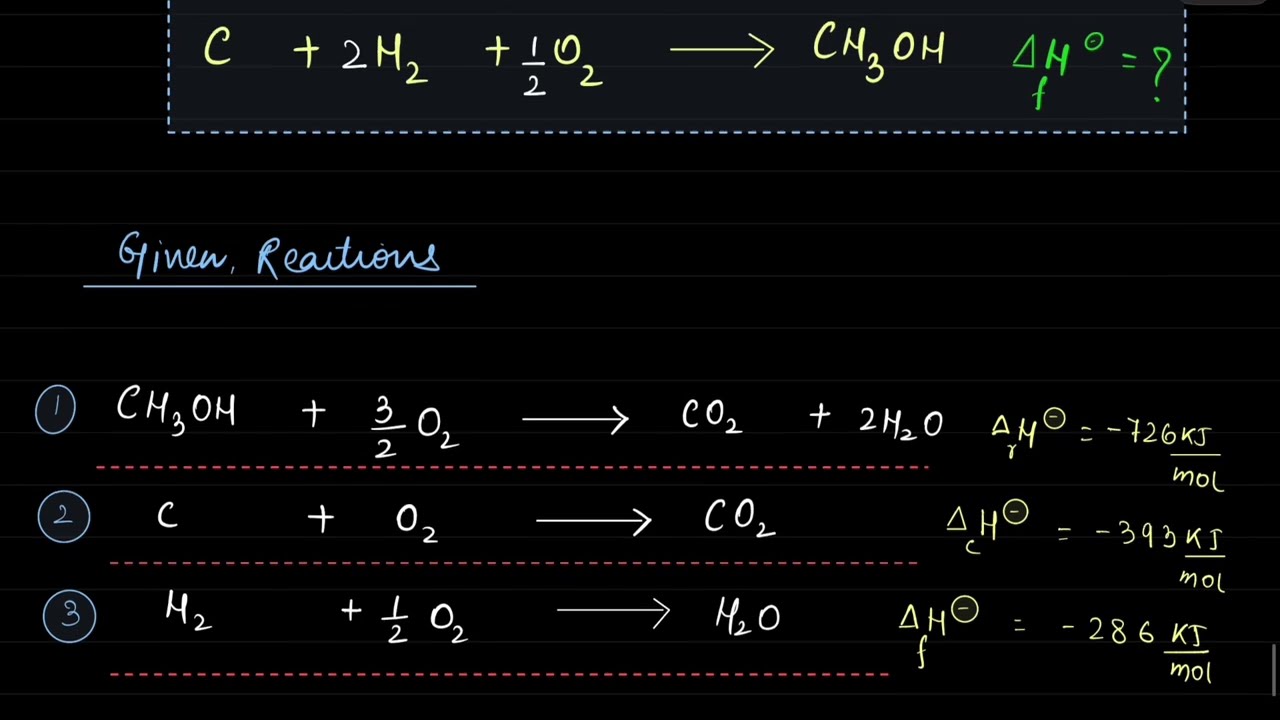 C + 2H₂ + 1/2 O₂ ⟶ CH₃OH ΔfH⊖ = ?
Given, Reactions
① CH₃OH + 3/2 O₂ ⟶ CO₂ + 2H₂O ΔrH⊖ = -726 KJ/mol
② C + O₂ ⟶ CO₂ ΔcH⊖ = -393 KJ/mol
③ H₂ + 1/2 O₂ ⟶ H₂O ΔfH⊖ = -286 KJ/mol